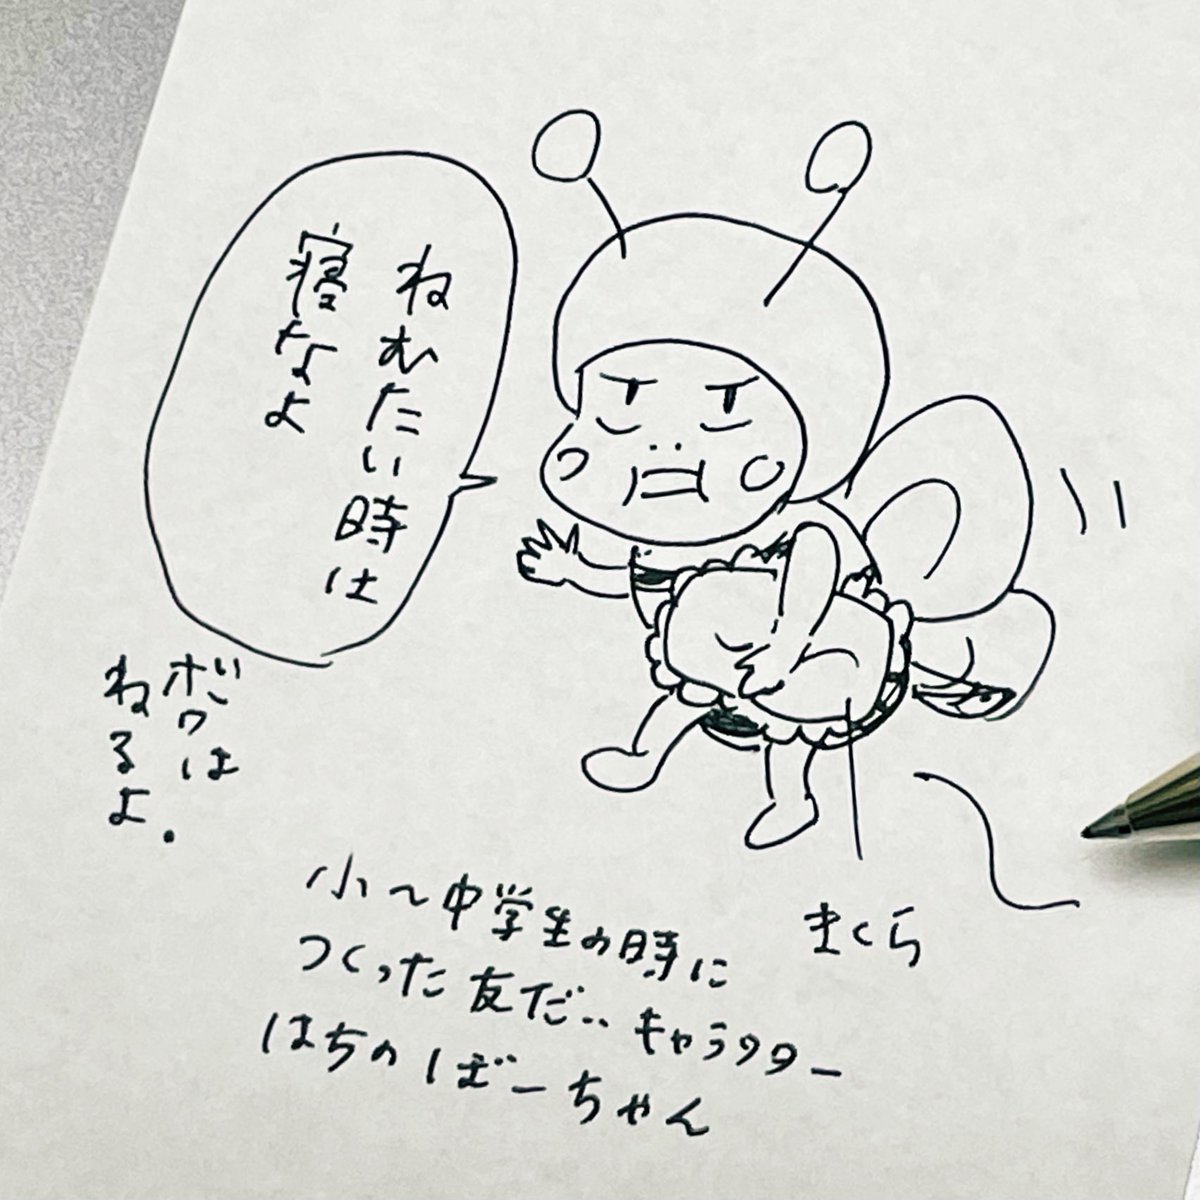 ねむたい時は
寝なよ
ボクは
ねるよ.
まくら
小〜中学生の時に
つくった友だ‥キャラクター
はちのぼーちゃん